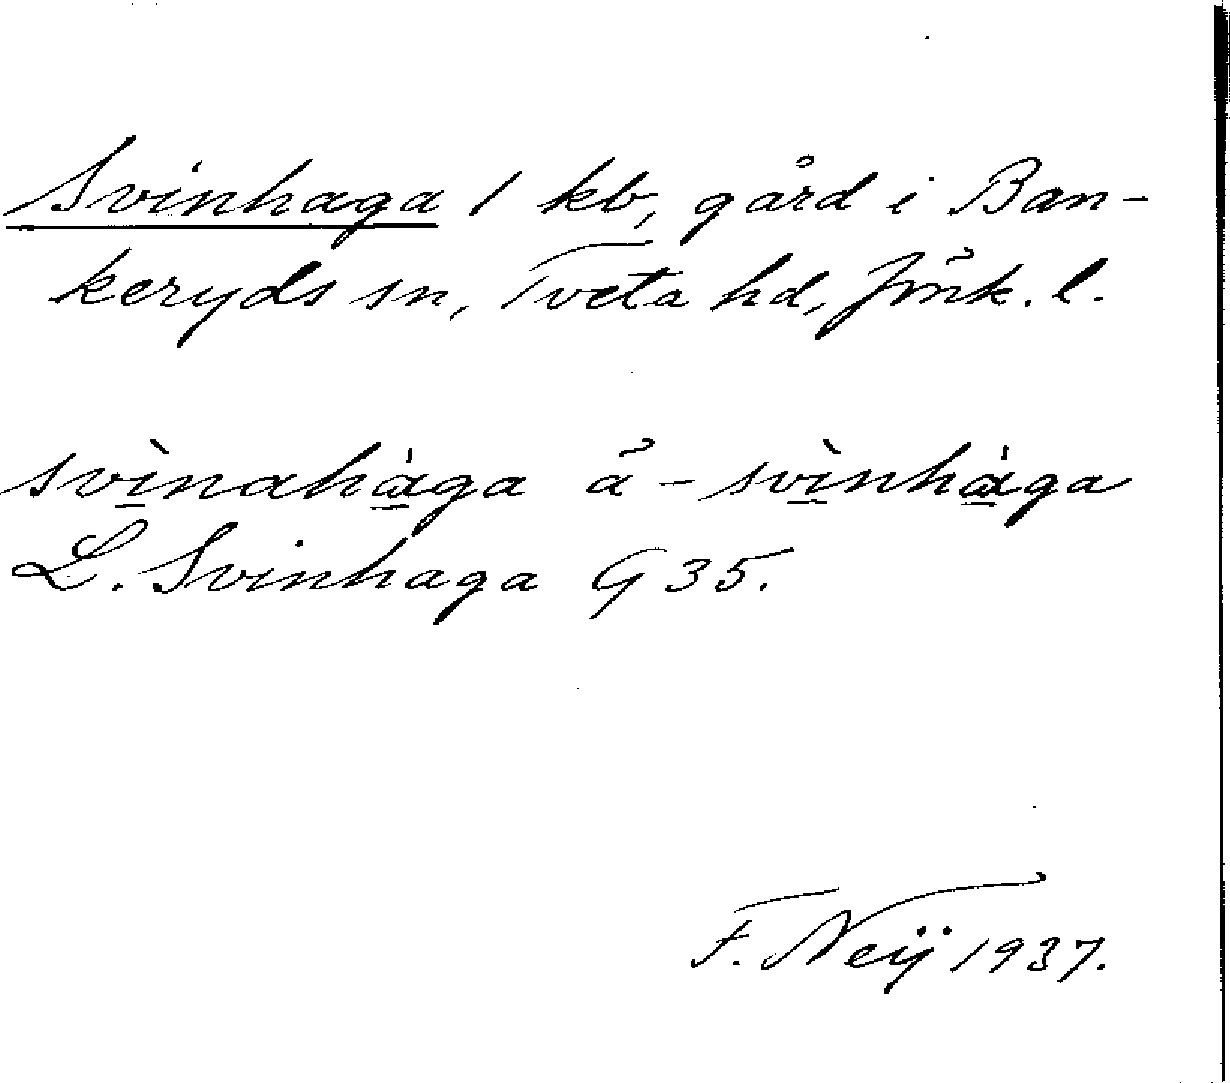 Svinhaga 1 kb, gård i Ban-
keryds sn, Tveta hd, Jönk. l.
svì̱nahà̱ga å - svì̱nhà̱ga
L. Svinhaga G 35.
F. Neij 1937.